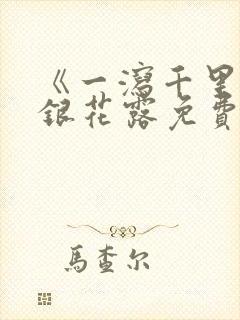 《一瀉千里
銀花露免費
馬查尔